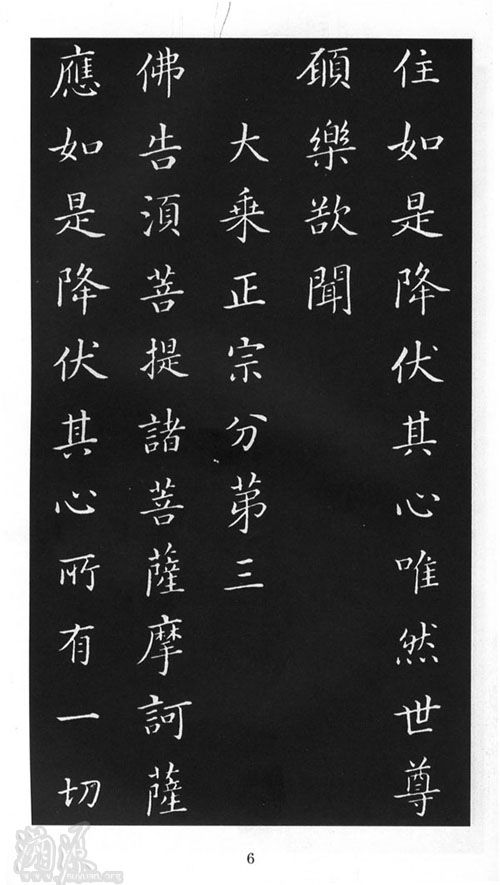 住如是降伏其心唯然世尊
願樂欲聞
大乗正宗分第三
佛告須菩提諸菩薩摩訶薩
應如是降伏其心所有一切
6
溯源
suyuan.org